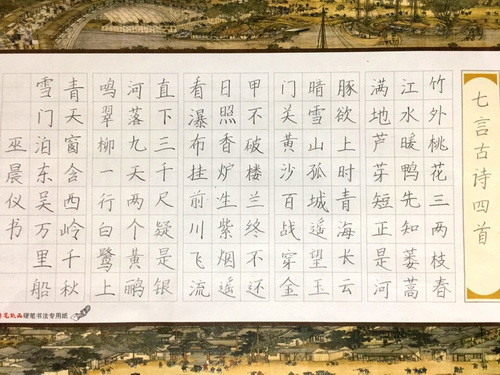 七言古诗四首
竹外桃花三两枝春
江水暖鸭先知蒌蒿
满地芦芽短正是河
豚欲上时青海长云
暗雪山孤城遥望玉
门关黄沙百战穿金
甲不破楼兰终不还
日照香炉生紫烟遥
看瀑布挂前川飞流
直下三千尺疑是银
河落九天两个黄鹂
鸣翠柳一行白鹭上
青天窗含西岭千秋
雪门泊东吴万里船
巫晨仪书
硬笔书法专用纸